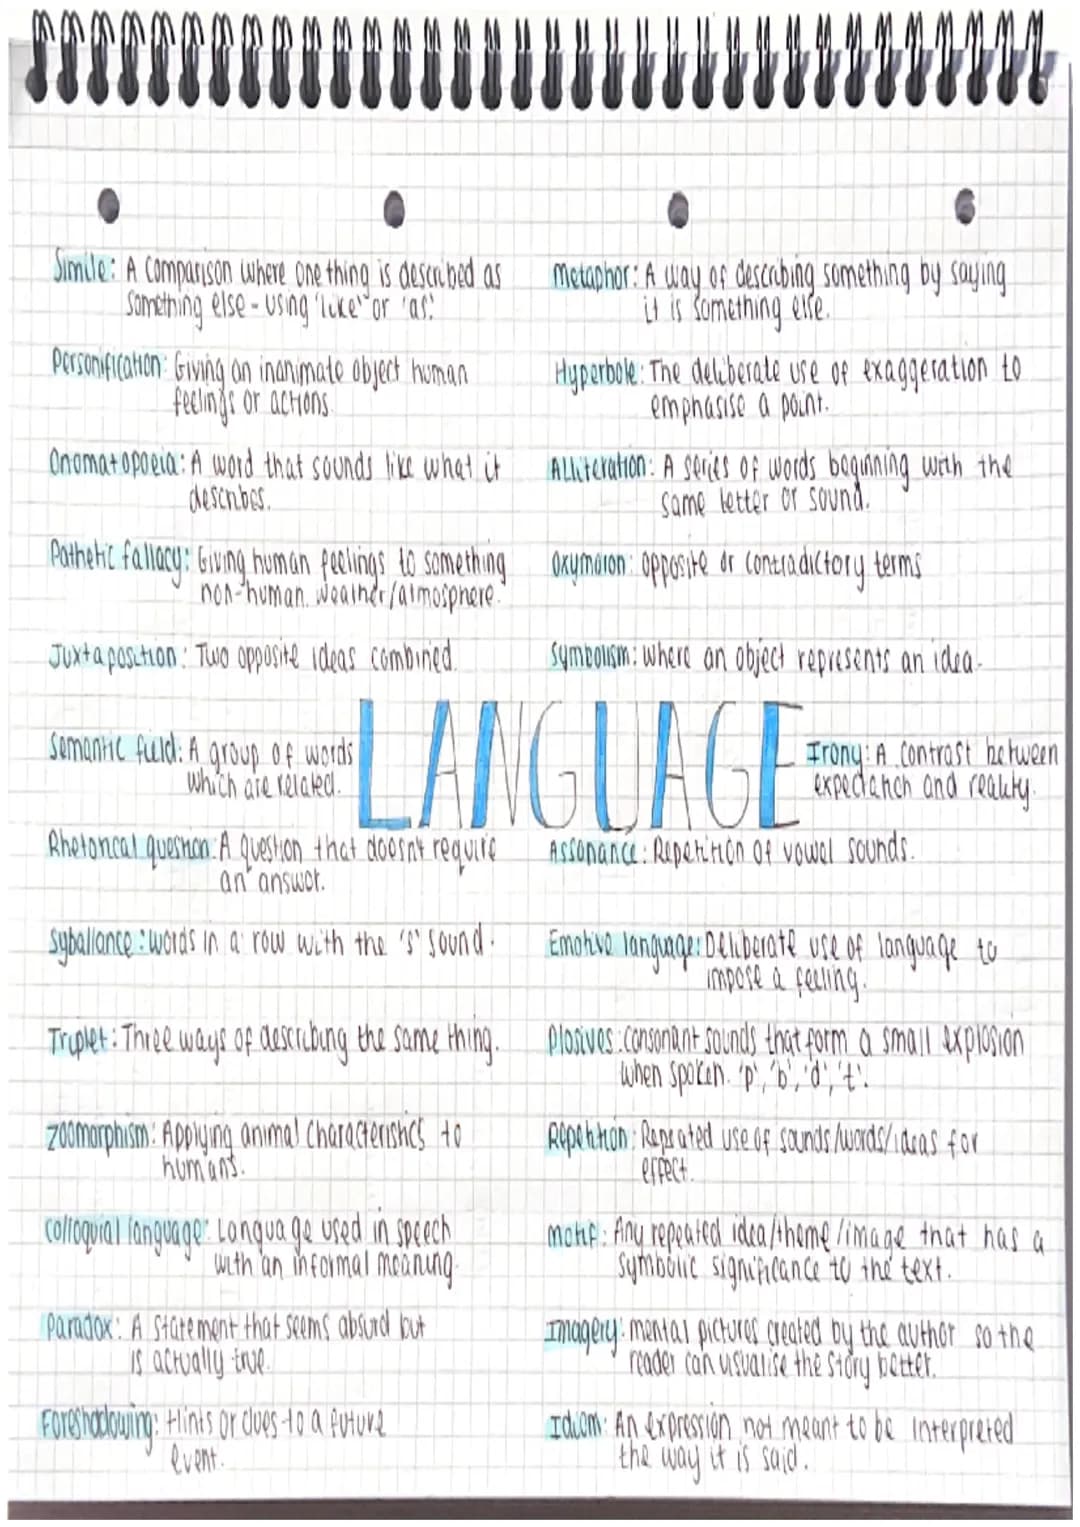 Simile: A comparison where one thing is described as
something else - using 'like' or 'as'.
Metaphor: A way of describing something by saying
it is something else.
Personification: Giving an inanimate object human
feelings or actions
Hyperbole: The deliberate use of exaggeration to
emphasise a point.
Onomatopoeia: A word that sounds like what it
describes.
Alliteration: A series of words beginning with the
same letter or sound.
Pathetic fallacy: Giving human feelings to something
non-human. weather/atmosphere.
Oxymoron: opposite or contradictory terms
Juxtaposition: Two opposite ideas combined.
Symbolism: where an object represents an idea.
LANGUAGE
Semantic field: A group of words
which are related.
Irony: A contrast between
expectation and reality.
Rhetorical question: A question that doesn't require
an answer.
Assonance: Repetition of vowel sounds.
Syballance: words in a row with the 's' sound.
Emotive language: Deliberate use of language to
impose a feeling.
Triplet: Three ways of describing the same thing.
Plosives: consonant sounds that form a small explosion
when spoken. 'p', 'b', 'd', 't'.
Zoomorphism: Applying animal characteristics to
humans.
Repetition: Repeated use of sounds/words/ideas for
effect.
Colloquial language: Language used in speech
with an informal meaning
Motif: Any repeated idea/theme/image that has a
symbolic significance to the text.
Paradox: A statement that seems absurd but
is actually true.
Imagery: mental pictures created by the author so the
reader can visualise the story better.
Foreshadowing: Hints or clues to a future
event.
Idiom: An expression not meant to be interpreted
the way it is said.